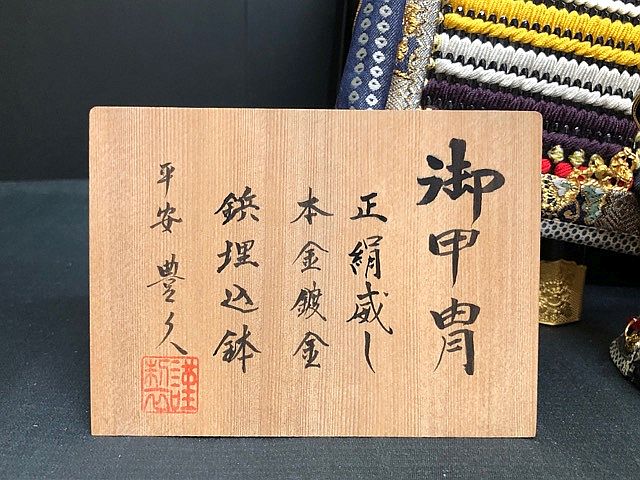 御甲冑
正絹威し
本金鍍金
鋲埋込鉢
平安 豊久
謹製